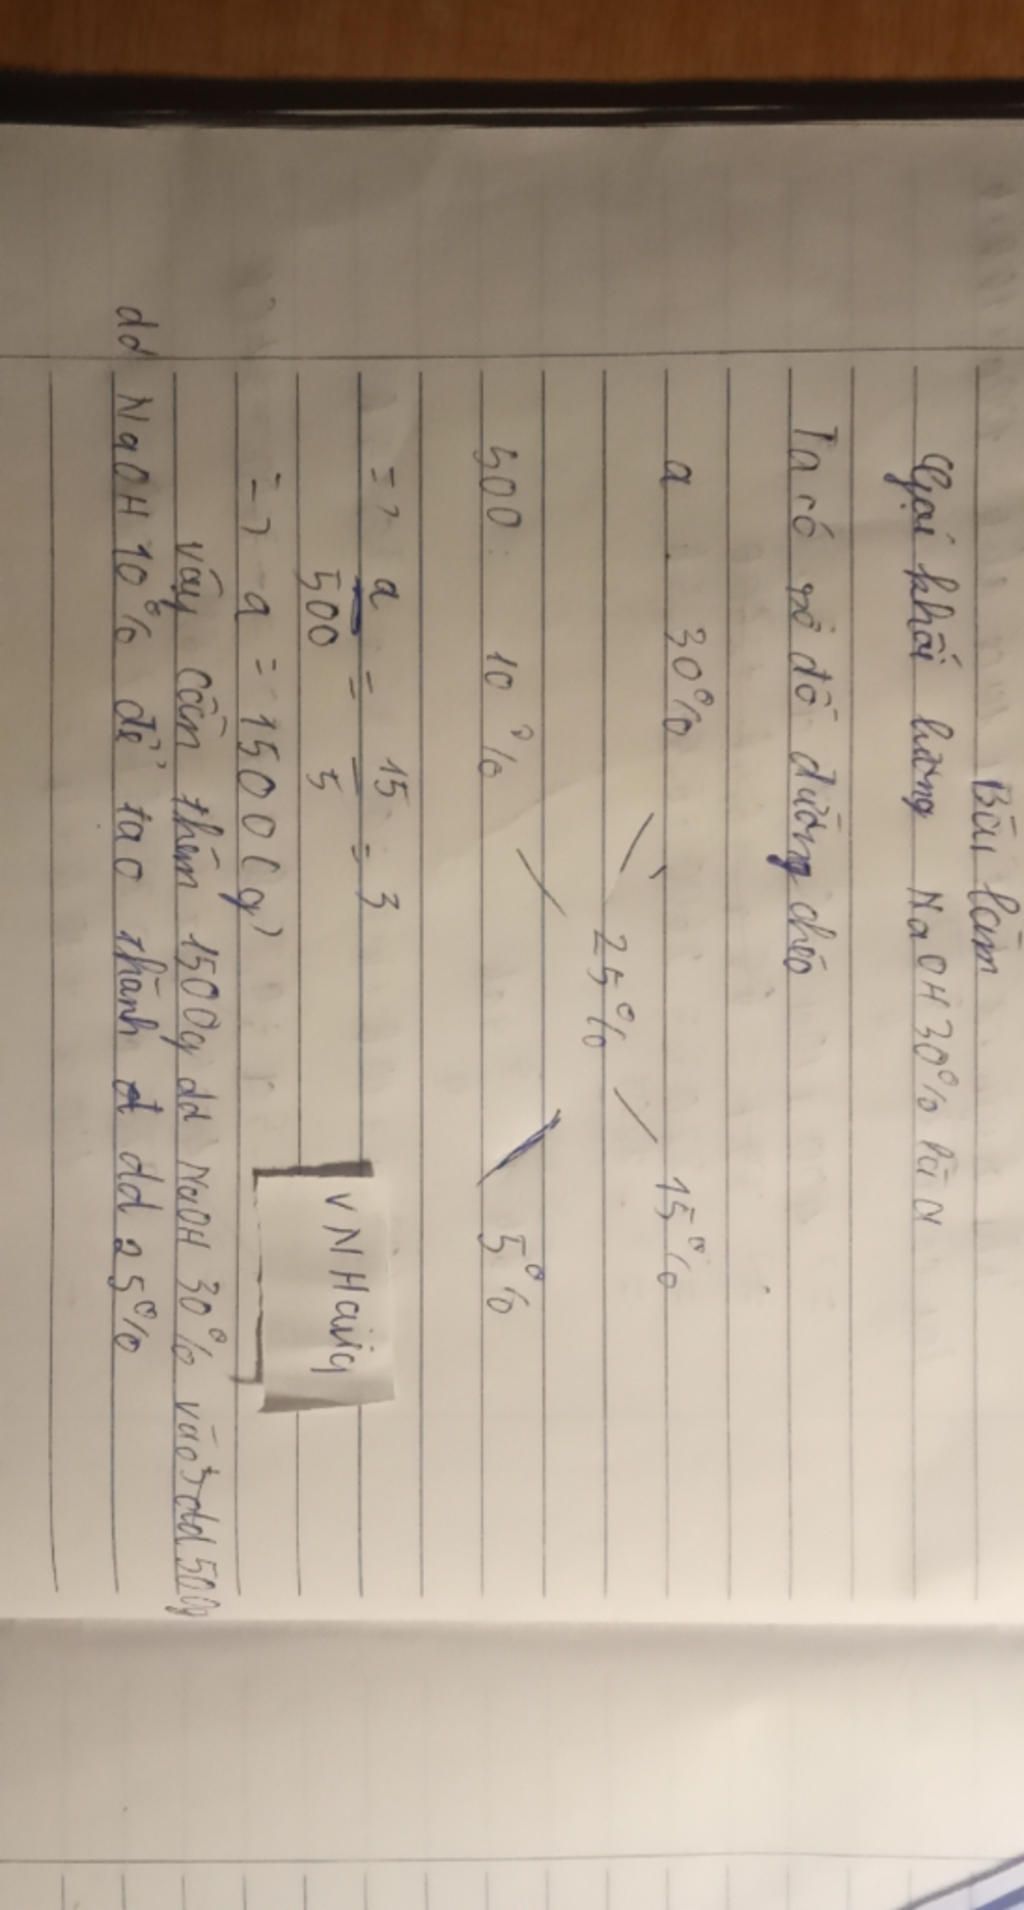 Bài làm
Gọi khối lượng NaOH 30% là a
Ta có sơ đồ đường chéo
a 30% 15%
25%
500 10% 5%
=> a = 15 = 3
500 5
=> a = 1500 (g)
vNHaiiq
vậy cần thêm 1500g dd NaOH 30% vào dd 500g
dd NaOH 10% để tạo thành dd 25%